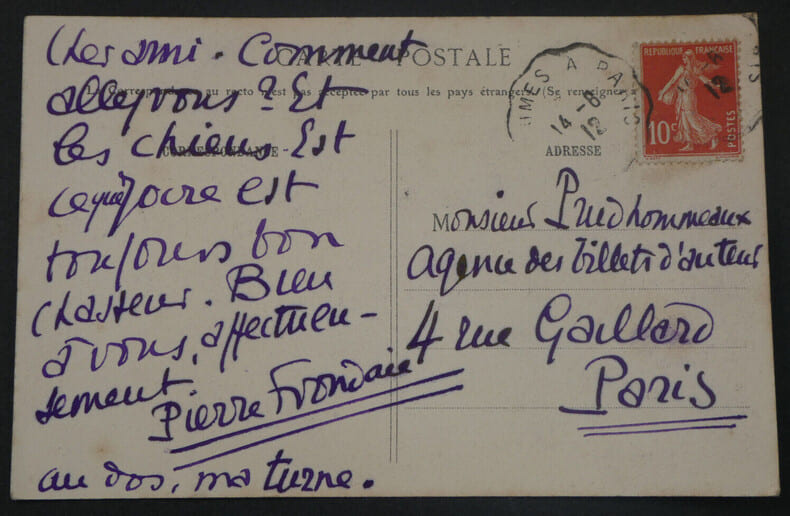 CARTE POSTALE
La Correspondance au recto n'est pas acceptée par tous les pays étrangers (Se renseigner
CORRESPONDANCE
Cher ami. Comment
allez vous ? Et
les chiens Est
ce que est
toujours bon
chasseur. Bien
à vous, affectueu-
sement
Pierre Frondaie
au dos, ma turne.
ADRESSE
Monsieur Prudhommeaux
agence des billets d'auteur
4 rue Gaillard
Paris
REPUBLIQUE FRANÇAISE
10c
POSTES
IMES A PARIS
14 -6
12